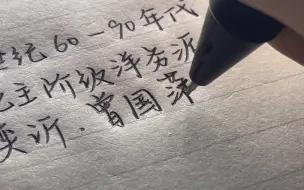 世纪60-90年代
主阶级洋务派
奕䜣.曾国藩